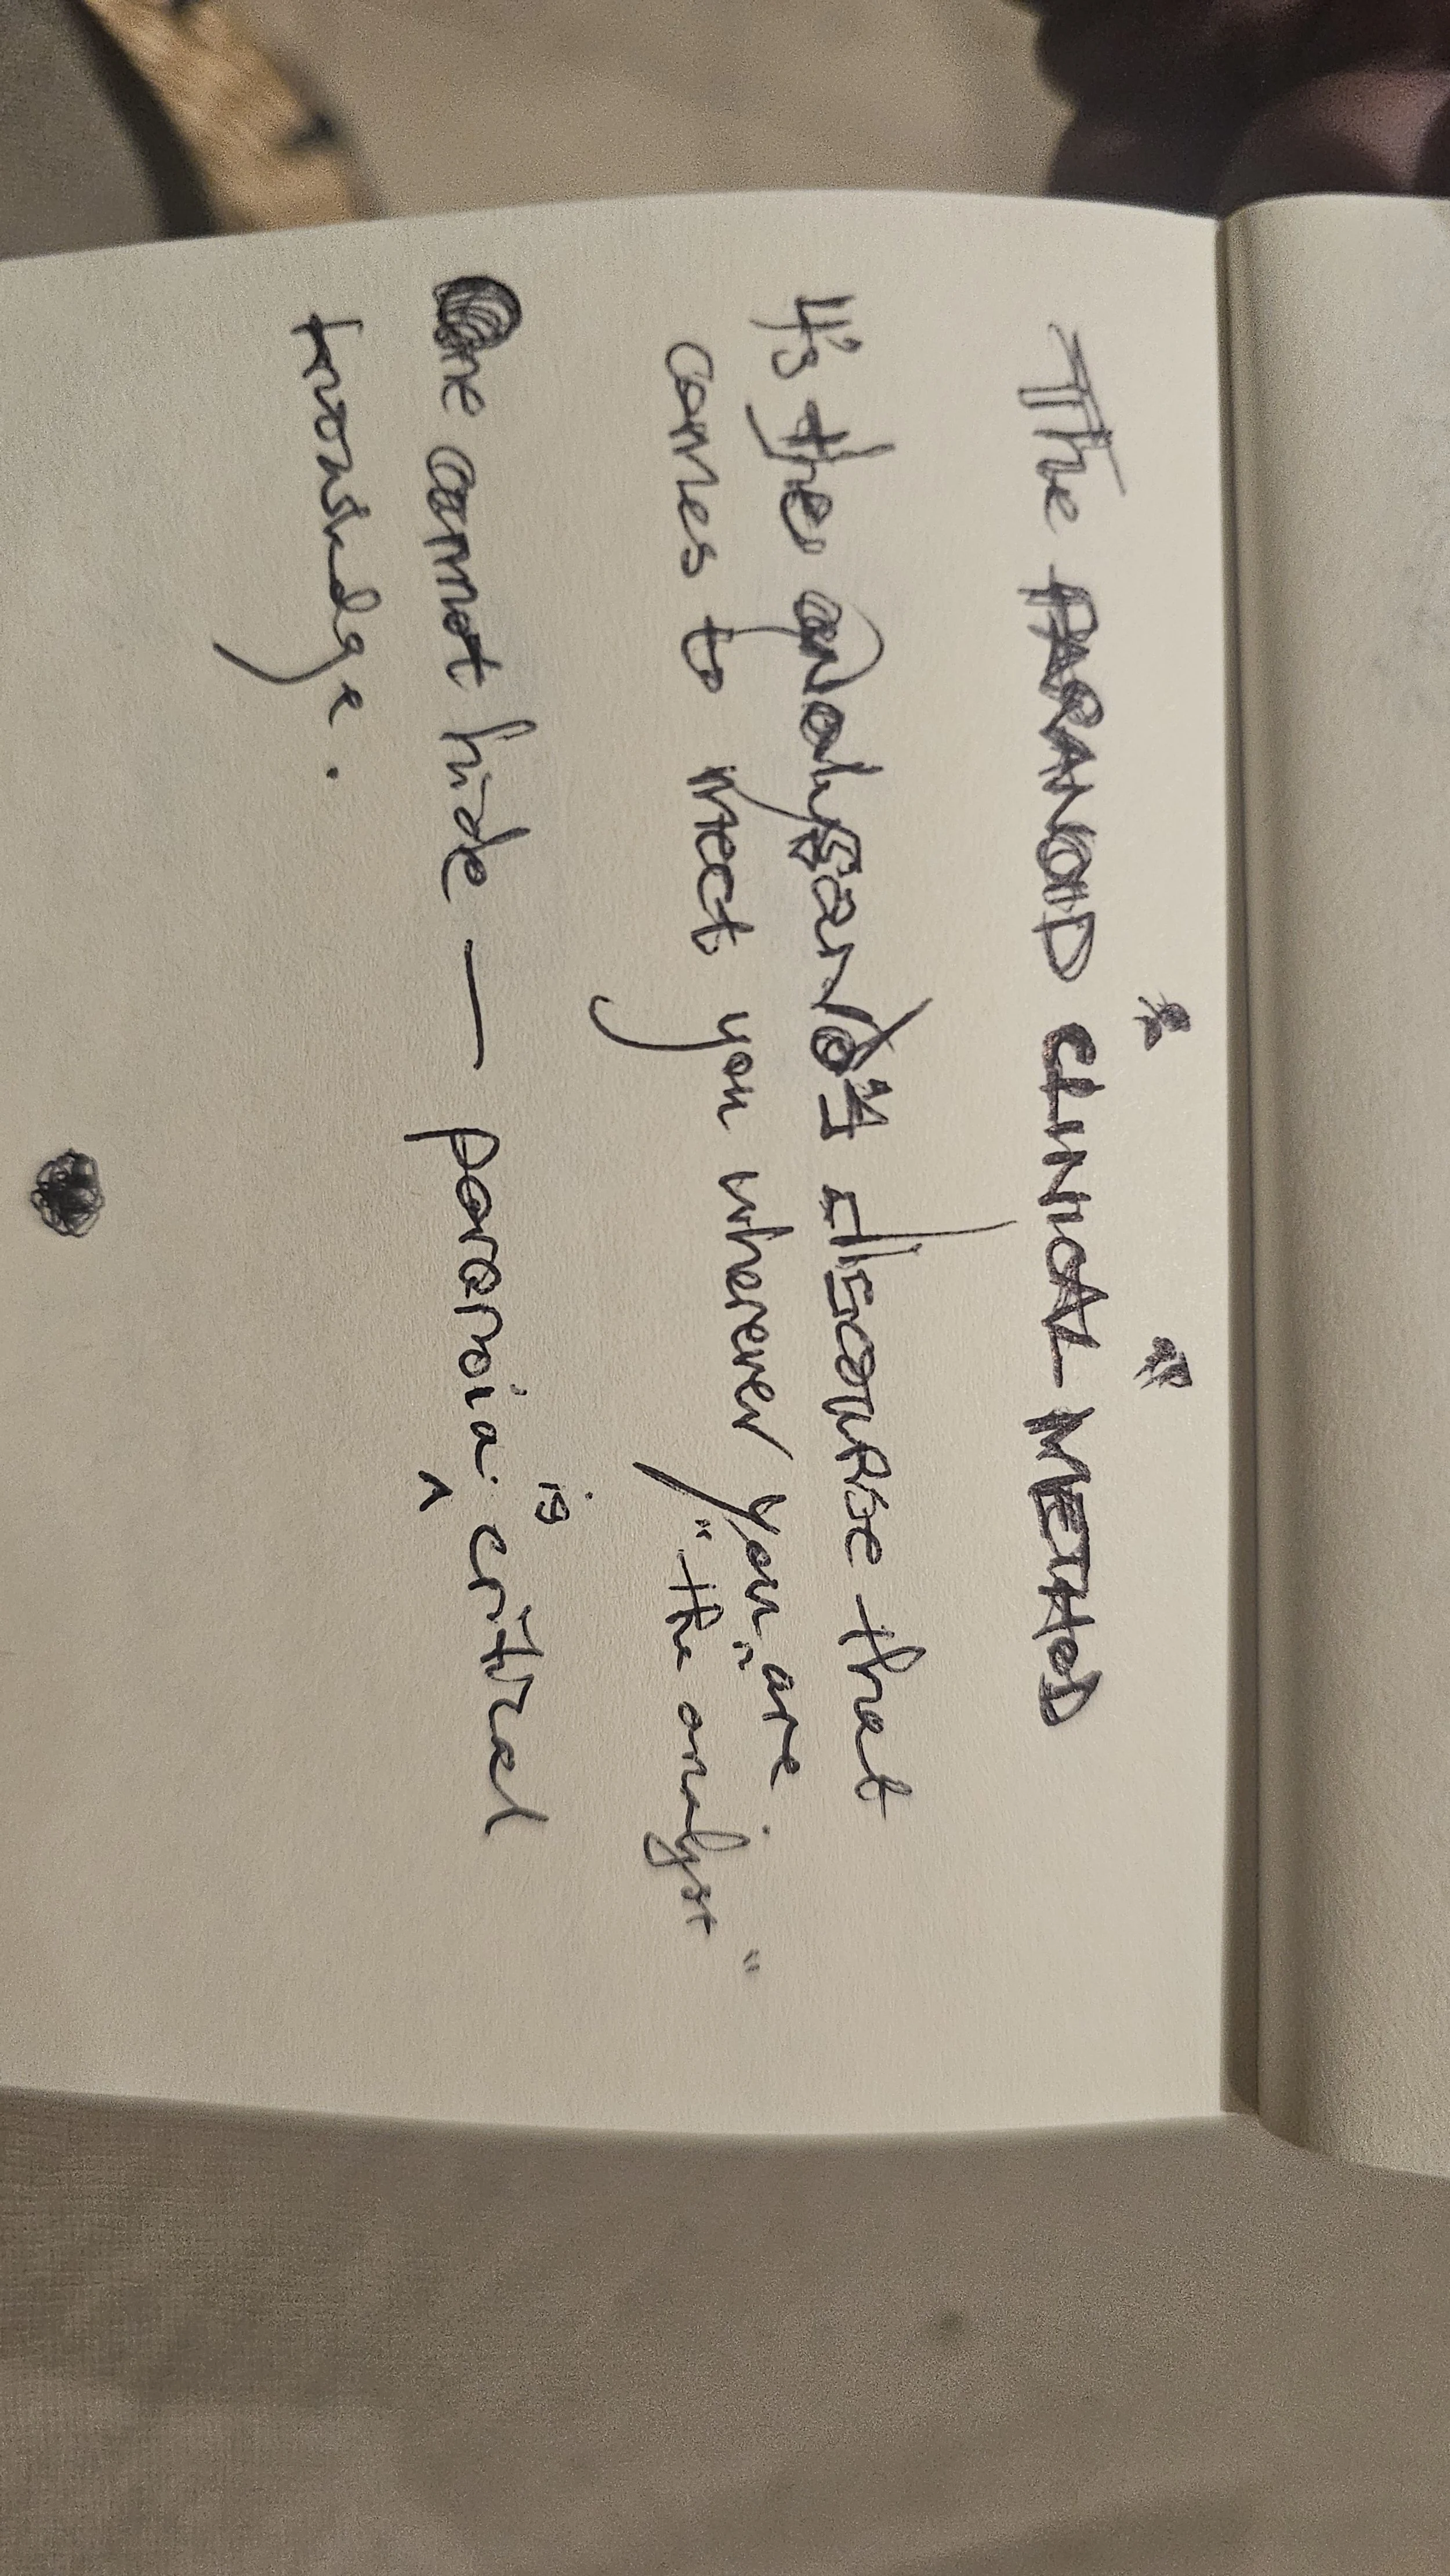 The PARANOID CLINICAL METHOD
It's the analysand's discourse that
comes to meet you wherever you are
" "the analyst"
One cannot hide — paranoia is critical
knowledge.